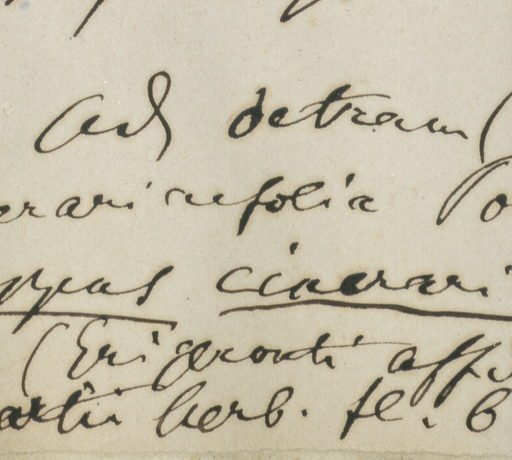 Ad detram (
erariaefolia Po
gyas cinerari
(Erigeronti affi
artii herb. fl. B